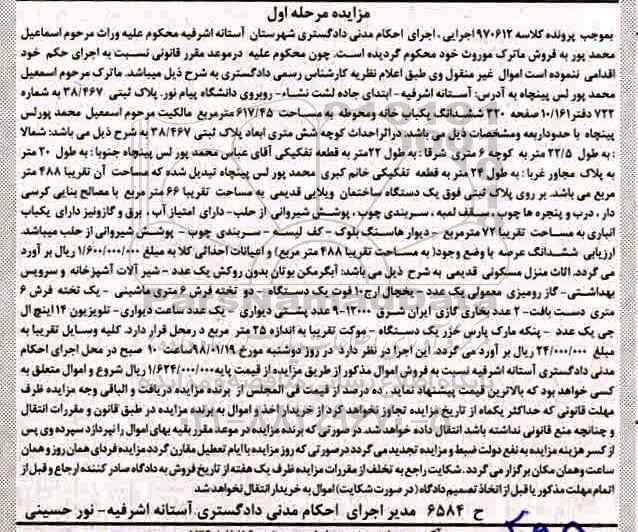 مزایده مرحله اول
بموجب پرونده کلاسه ۹۷۰۶۱۲اجرایی ، اجرای احکام مدنی دادگستری شهرستان آستانه اشرفیه محکوم علیه وراث مرحوم اسماعیل
محمد پور به فروش ماترک موروث خود محکوم گردیده است. چون محکوم علیه درموعد مقرر قانونی نسبت به اجرای حکم خود
اقدامی ننموده است اموال غیر منقول وی طبق اعلام نظریه کارشناس رسمی دادگستری به شرح ذیل میباشد. ماترک مرحوم اسمعیل
محمد پور لس پینچاه به آدرس: آستانه اشرفیه- ابتدای جاده لشت نشاء- روبروی دانشگاه پیام نور. پلاک ثبتی ۳۸/۴۶۷ به شماره
۷۲۲ دفتر۱۰/۱۶۱ صفحه ۳۲۰ ششدانگ یکباب خانه ومحوطه به مساحت ۶۱۷/۴۵ مترمربع مالکیت مرحوم اسمعیل محمد پورلس
پینچاه با حدوداربعه ومشخصات ذیل می باشد: دراثراحداث کوچه شش متری ابعاد پلاک ثبتی ۳۸/۴۶۷ به شرح ذیل می باشد: شمالا
: به طول ۲۲/۵ متر به کوچه ۶ متری شرقا : به طول ۲۲متر به قطعه تفکیکی آقای عباس محمد پور لس پینچاه جنوبا : به طول ۲۰ متر
به پلاک مجاور غربا : به طول ۲۴ متر به قطعه تفکیکی خانم کبری محمد پور لس پینچاه تبدیل شده که مساحت آن تقریبا ۴۸۸ متر
مربع می باشد. بر روی پلاک ثبتی فوق یک دستگاه ساختمان ویلایی قدیمی به مساحت تقریبا ۶۶ متر مربع با مصالح بنایی کرسی
دار ، درب و پنجره ها چوب ، سقف لمبه ، سربندی چوب ، پوشش شیروانی از حلب- دارای امتیاز آب ، برق و گازونیز دارای یکباب
انباری به مساحت تقریبا ۷۲ مترمربع - دیوار هاسنگ بلوک - کف لیسه - سربندی چوب - پوشش شیروانی از حلب میباشد.
ارزیابی ششدانگ عرصه با وضع وجود( به مساحت تقریبا ۴۸۸ متر مربع) و اعیانات احداثی کلا به مبلغ ۱/۶۰۰/۰۰۰/۰۰۰ ریال بر آورد
می گردد. اثاث منزل مسکونی قدیمی به شرح ذیل می باشد: آبگرمکن بوتان بدون روکش یک عدد - شیر آلات آشپزخانه و سرویس
بهداشتی- گاز رومیزی معمولی یک عدد - یخچال ارج۱۰ فوت یک دستگاه - دو تخته فرش ۶ متری ماشینی - یک تخته فرش ۶
متری دست بافت- ۲ عدد بخاری گازی ایران شرق ۱۲۰۰۰- ۹عدد پشتی دیواری - یک عدد ساعت دیواری- تلویزیون ۱۴ اینچ ال
جی یک عدد - پنکه مارک پارس خزر یک دستگاه - موکت تقریبا به اندازه ۲۵ متر مربع د رمحل قرار دارد. کلیه وسایل تقریبا به
مبلغ ۲۴/۰۰۰/۰۰۰ ریال بر آورد می گردد. این اجرا در نظر دارد در روز دوشنبه مورخ ۹۸/۰۱/۱۹ساعت ۱۰ صبح در محل اجرای احکام
مدنی دادگستری آستانه اشرفیه نسبت به فروش اموال مذکور از طریق مزایده از قیمت پایه۱/۶۲۴/۰۰۰/۰۰۰ ریال شروع و اموال متعلق به
کسی خواهد بود که بالاترین قیمت پیشنهاد نماید . ده درصد از قیمت فی المجلس از برنده مزایده دریافت و الباقی وجه مزایده ظرف
مهلت قانونی که حداکثر یکماه از تاریخ مزایده تجاوز نخواهد کرد از خریدار اخذ و اموال به برنده مزایده در طبق قانون و مقررات انتقال
و چنانچه منع قانونی نداشته باشد انتقال داده خواهد شد. در صورتی که برنده مزایده در موعد مقرر بقیه بهای اموال را نپردازد سپرده وی پس
از کسر هزینه مزایده به نفع دولت ضبط و مزایده تجدید می گردد درصورتی که روز مزایده با ایام تعطیل مقارن گردد مزایده فردای همان روز و همان
ساعت وهمان مکان برگزار می گردد. شکایت راجع به تخلف از مقررات مزایده ظرف یک هفته از تاریخ فروش به دادگاه صادر کننده ارجاع و قبل از
اتمام مهلت مذکور یا قبل از اتخاذ تصمیم دادگاه ( در صورت شکایت) اموال به خریدار انتقال نخواهد شد.
ح ۶۵۸۴ مدیر اجرای احکام مدنی دادگستری آستانه اشرفیه- نور حسینی